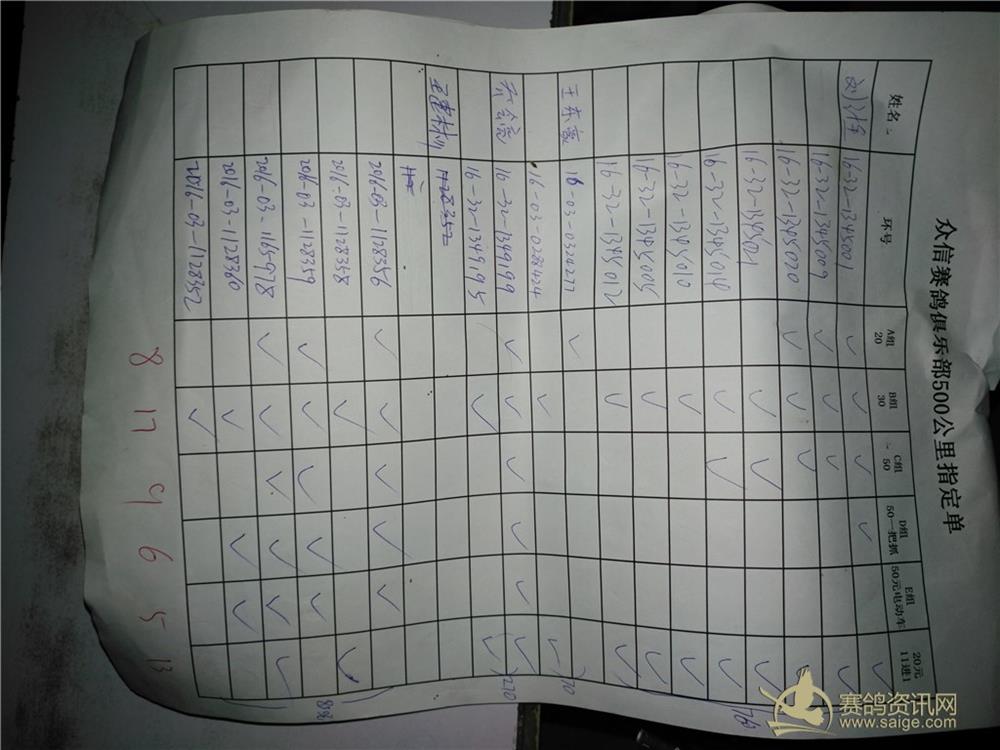 众信赛鸽俱乐部500公里指定单
姓名 环号 A组 20 B组 30 C组 50 D组 50一把抓 E组 50元电动车 20元 11进1
16-32-1345001 ✓ ✓ ✓ ✓ ✓
16-32-1345009 ✓ ✓ ✓ ✓
16-32-1345020 ✓ ✓ ✓ ✓
16-32-1345021 ✓ ✓ ✓
16-32-1345014 ✓ ✓ ✓
16-32-1345010 ✓ ✓
16-32-1345005 ✓ ✓
16-32-1345012 ✓ ✓
王东 16-03-0324227 ✓
16-03-0284424 ✓ ✓ 70
乔金亮 16-32-1349199 ✓ ✓ ✓ ✓ ✓ ✓ 270
16-32-1349195 ✓ ✓
王建林
2016-03-1128356 ✓ ✓ ✓ ✓ ✓
2016-03-1128358 ✓ ✓
2016-03-1128359 ✓ ✓ ✓ ✓ ✓
2016-03-1165978 ✓ ✓ ✓ ✓ ✓ ✓
2016-03-1128360 ✓ ✓ ✓
2016-03-1128352 ✓
8 17 9 6 5 13
赛鸽资讯网
www.saige.com